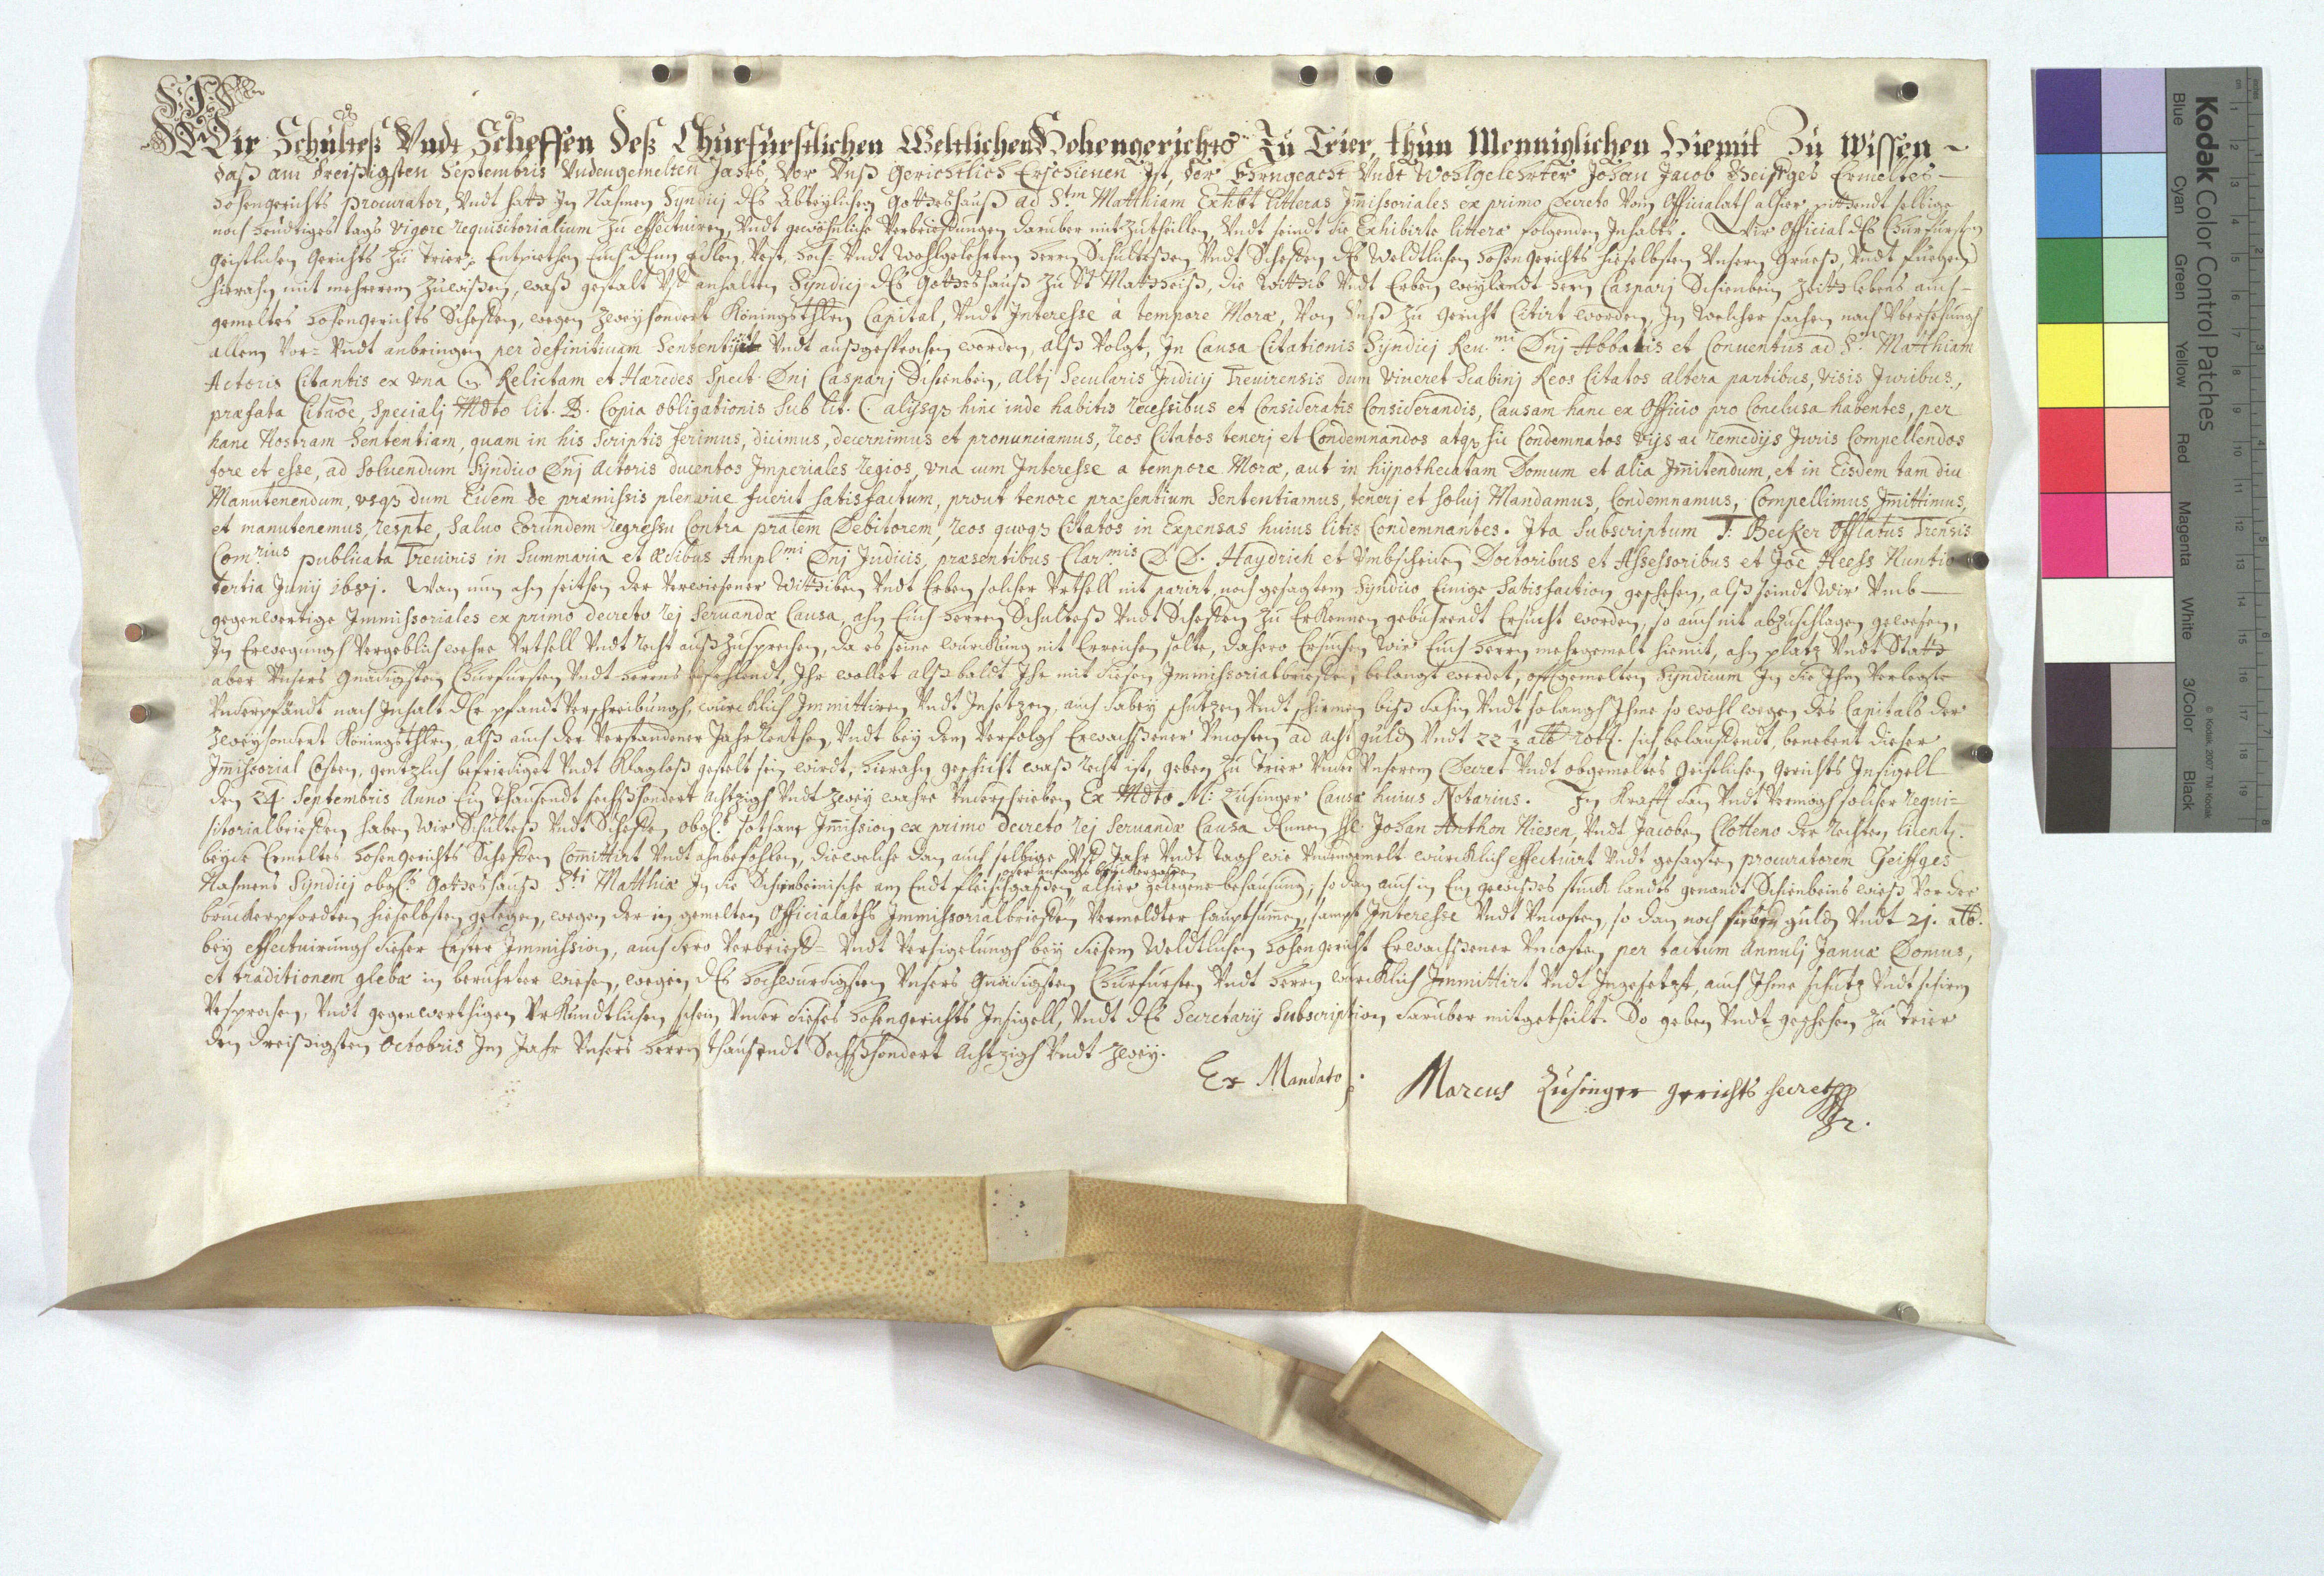 Wir Schulteß Undt Scheffen Deß Churfurstlichen Weltlichen Hohengerichts Zu Trier, thun Menniglichen Hiemit Zu Wissen ~
daß am dreißigsten Septembris Undengemelten Jahrs, Vor Unß Gerichtlich Erschienen Ist, der Ehrngeacht Undt Wohlgelehrter Johan Jacob Geiffges Ermeltes
hohengerichts Procurator, Undt hatt In Nahmen Syndicj deß Abteylichen Gotteshauß ad S.tm Matthiam Exhibt litteras Im̃issoriales ex primo Decreto Vom Officialath alhier, pittendt selbige
noch heudtiges tags vigore requisitorialium zu effectuiren, Undt gewohnliche Verbrieffungen daruber mitzutheillen, Undt seindt die Exhibirte litteræ folgenden Inhalts. Wir Official deß Churfursten
Geistlichen Gerichts zu Trier, Entpiethen Euch denen Edlen, Vest, hoch- Undt Wohlgelehrten herrn Schultessen Undt Scheffen deß Weldtlichen hohengerichts hieselbsten Unsern Grueß, Undt fuegen
hierahn mit mehrerem zuwissen, waß gestalt Uff anhalten Syndicj deß Gotteshauß zu St Mattheiß, die Wittib Undt Erben weylandt herrn Casparj Schienbein zeitlebens auch
gemeltes hohengerichts Scheffen, wegen Zweyhondert Köningsthllrn Capital, Undt Interesse à tempore Moræ, Von Unß zu Gericht Citirt worden, In welcher sachen nach Ubersehungh
allem Vor- Undt anbringen per definitivam Sententijrt Undt außgesprochen worden, alß Volgt, In Causa Citationis Syndicj Reu.mi Dnj Abbatis et Conuentus ad S.m Matthiam
Actoris Citantis ex vna Relictam et Hæredes Spect. Dnj Casparj Schienbein, Altj Secularis Judicij Treuirensis dum viueret Scabinj Reos Citatos altera partibus, visis Juribus,
præfata Citñoe, Specialj Mdto lit. B. Copia obligationis Sub lit. C. alijsqz hinc inde habitis recessibus et Consideratis Considerandis, Causam hanc ex Officio pro Conclusa habentes, per
hanc Nostram Sententiam, quam in his Scriptis ferimus, dicimus, decernimus et pronunciamus, reos Citatos tenerj et Condemnandos atqz sic Condemnatos vijs ac remedijs Juris Compellendos
fore et esse, ad Soluendum Syndico Dnj Actoris ducentos Imperiales regios, vna cum Interesse a tempore Moræ, aut in hijpothecatam Domum et alia Im̃itendum, et in Eisdem tam diu
Manutenendum, vsqz dum Eidem de præmissis plenarie fuerit satisfactum, prout tenore præsentium Sententiamus, tenerj et soluj Mandamus, Condemnamus, Compellimus, Im̃ittimus,
et manutenemus, respte, Saluo Eorundem regressu Contra pralem Debitorem, reos quoqz Citatos in Expensas huius litis Condemnantes. Ita Subscriptum T: Becker Offlatus Treñsis
Com.rius publicata Treuiris in Summaria et ædibus Ampl.mi Dnj Judicis, præsentibus Clar.mis D.D. Haydrich et Umbscheiden Doctoribus et Assessoribus et Joe Heess Nuntio
tertia Junij 168j. Wan nun ahn seithen der Verwiesener Wittiben Undt Erben solcher Urthell nit parirt, noch gesagtem Syndico Einige Satisfaction geschehen, alß seindt Wir Umb
gegenwertige Immissoriales ex primo decreto rej Seruandæ Causa, ahn Euch herren Schulteß Undt Scheffen zu Erkennen gebührendt Ersucht worden, so auch nit abzuschlagen gewesen,
In Erwegungh Vergeblich wehre Urthell Undt recht außzusprechen, da es seine würckung nit Erreichen solte, dahero Ersuchen Wir Euch herrn mehrgemelt hiemit, ahn platz Undt Statt
aber Unsers Gnädigsten Churfursten Undt herrens befehlendt, Ihr wollet alßbaldt Ihr mit diesen Immissorialbrieffen belangt werdet, offtgemelten Syndicum In die Ihm Verlegte
Underpfändt nach Inhalt der pfandt Verschreibungh, würcklich Immittiren Undt Insetzen, auch dabey schutzen Undt schirmen biß dahin Undt so langh Ihme so wohl wegen des Capitals der
Zweyhondert Köningsthllrn, alß auch der Verstandener Jahr renthen, Undt bey dem Verfolgh Erwachssener Uncosten ad acht guldn Undt 22½ alb rott. sich belauffendt, benebent dieser
Im̃issorial Costen, gentzlich befriediget Undt klagloß gestelt sein wirdt, hierahn geschicht waß recht ist, geben zu Trier Under Unserem Secret Undt obgemeltes Geistlichen Gerichts Insigell
den 24 Septembris Anno Ein thausendt sechßhondert Achtzigh Undt zwey wahre Underschrieben Ex Mdto M: Zusinger Causæ huius Notarius. In Krafft dan Undt Vermögh solcher requi-
sitorialbrieffen haben Wir Schulteß Undt Scheffen obgl. sothane Im̃ission ex primo decreto rej Seruandæ Causa denen hl. Johan Anthon Niesen, Undt Jacoben Clotteno der rechten licent.
beyde Ermeltes hohengerichts Scheffen Com̃ittirt Undt ahnbefohlen, die welche dan auch selbige Uff Jahr Undt Tagh wie Undengemelt würcklich effectuirt Undt gesagten procuratorem Geiffges
oder anfangs Bruckergaßen
Nahmens Syndicj obgl. Gotteshauß S.ti Matthiæ In die Schienbeinische am Endt fleischgaßen alhier gelegene behausung, so dan auch in Ein gewisses stuck landts genandt Schienbeins wieß Vor der
bruckerpfordten hieselbsten gelegen, wegen der in gemelten Officialaths Immissorialbrieffen Vermeldter hauptsum̃en, sampt Interesse Undt Uncosten, so dan noch sieben guldn Undt 2j. alb.
bey effectuirungh dieser Erster Immission, auch dero Verbrieff- Undt Versigelungh bey diesem Weldtlichen hohengericht Erwachssener Uncosten per tactum Annulj Januæ Domus,
et traditionem glebæ in beruhrter wiesen, wegen deß hochwurdigsten Unsers Gnädigsten Churfursten Undt herrn würcklich Immittirt Undt Ingesetzt, auch Ihme schutz Undt schirm
Versprochen, Undt gegenwerthigen Urkundtlichen schein Under dieses hohengerichts Insigell, Undt deß Secretarij Subscription daruber mitgetheilt. So geben Undt geschehen zu Trier
den dreißigsten Octobris Im Jahr Unsers herrn thausendt Sechßhondert Achtzigh Undt Zwey.
Ex Mandato: Marcus Zusinger gerichts secret
Kodak Color Control Patches
Blue Cyan Green Yellow Red Magenta White 3/Color Black
© Kodak, 2007 TM: Kodak